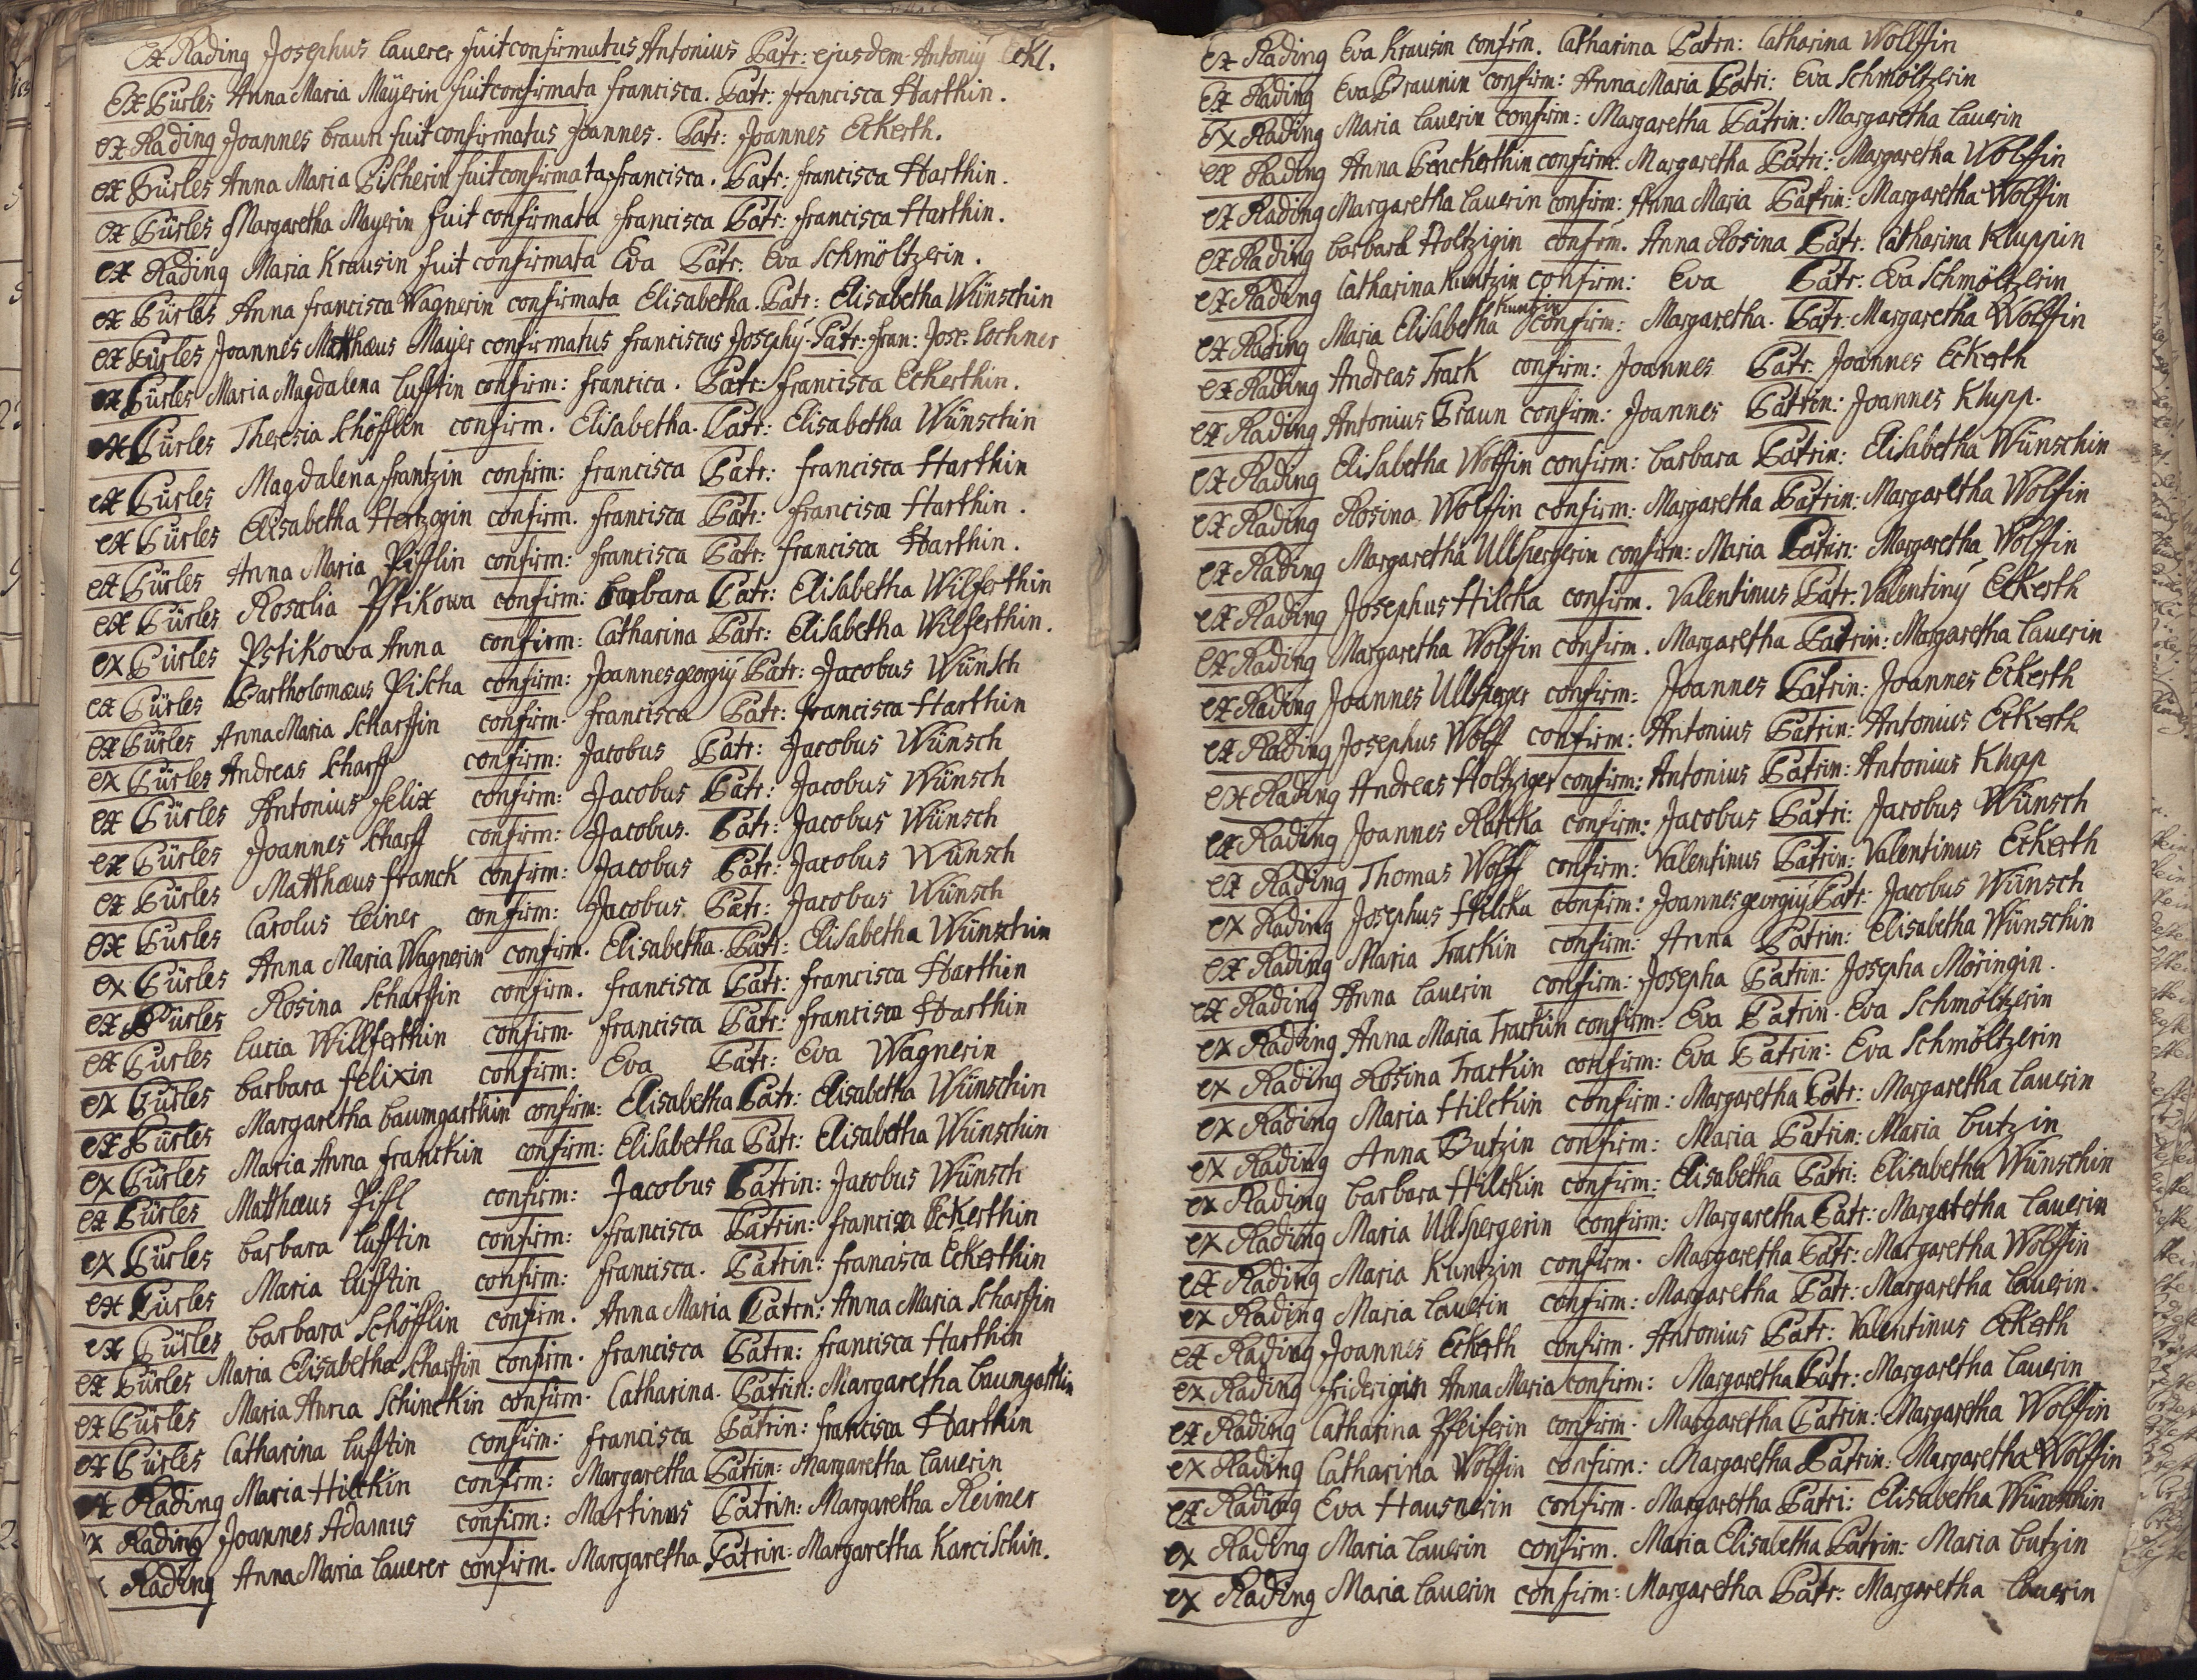 ex Rading Josephus Lauerer fuit confirmatus Antonius Patr: ejusdem Antonÿ Eckl.
Ex Pürles Anna Maria Mayerin fuit confirmata francisca. Patr: francisca Harthin.
ex Rading Joannes braun fuit confirmatus Joannes. Patr: Joannes Eckerth.
ex Pürles Anna Maria Pischerin fuit confirmata francisca. Patr: francisca Harthin.
ex Pürles Margaretha Mayerin fuit confirmata francisca Patr: francisca Harthin.
ex Rading Maria Krausin fuit confirmata Eva Patr: Eva Schmöltzerin.
ex Pürles Anna francisca Wagnerin confirmata Elisabetha. Patr: Elisabetha Wünschin
ex Pürles Joannes Matthæus Mayer confirmatus franciscus Josephÿ Patr: fran: Jose: Lochner
ex Pürles Maria Magdalena Lufftin confirm: francica. Patr: francisca Eckerthin.
ex Pürles Theresia Schöfflin confirm. Elisabetha. Patr: Elisabetha Wünschin
ex Pürles Magdalena frantzin confirm: francisca Patr: francisca Harthin
ex Pürles Elisabetha Hertzogin confirm. francisca Patr: francisca Harthin.
ex Pürles Anna Maria Pifflin confirm: francisca Patr: francisca Harthin.
ex Pürles Rosalia Pstikowa confirm: barbara Patr: Elisabetha Wilferthin
ex Pürles Pstikowa Anna confirm: Catharina Patr: Elisabetha Wilferthin.
ex Pürles Bartholomæus Pischa confirm: Joannes georgiÿ Patr: Jacobus Wünsch
ex Pürles Anna Maria Scharffin confirm: francisca Patr: francisca Harthin
ex Pürles Andreas Scharff confirm: Jacobus Patr: Jacobus Wünsch
ex Pürles Antonius felix confirm: Jacobus Patr: Jacobus Wünsch
ex Pürles Joannes Scharff confirm: Jacobus. Patr: Jacobus Wünsch
ex Pürles Matthæus franck confirm: Jacobus Patr: Jacobus Wünsch
ex Pürles Carolus Leiner confirm: Jacobus Patr: Jacobus Wünsch
ex Pürles Anna Maria Wagnerin confirm. Elisabetha. Patr: Elisabetha Wünschin
ex Pürles Rosina Scharffin confirm. francisca Patr: francisca Harthin
ex Pürles Lucia Willferthin confirm. francisca Patr: francisca Harthin
ex Pürles barbara felixin confirm: Eva Patr: Eva Wagnerin
ex Pürles Margaretha baumgarthin confirm: Elisabetha Patr: Elisabetha Wünschin
ex Pürles Maria Anna franckin confirm: Elisabetha Patr: Elisabetha Wünschin
ex Pürles Matthæus Piffl confirm: Jacobus Patrin: Jacobus Wünsch
ex Pürles barbara Lufftin confirm: francisca Patrin: francisca Eckerthin
ex Pürles Maria Lufftin confirm: francisca. Patrin: francisca Eckerthin
ex Pürles barbara Schöfflin confirm. Anna Maria Patrn: Anna Maria Scharffin
ex Pürles Maria Elisabetha Scharffin confirm. francisca Patrn: francisca Harthin
ex Pürles Maria Anna Schinckin confirm. Catharina. Patrin: Margaretha baumgarthin
ex Pürles Catharina Lufftin confirm: francisca Patrin: francisca Harthin
ex Rading Maria Hilckin confirm: Margaretha Patrin: Margaretha Lauerin
ex Rading Joannes Adamus confirm: Martinus Patrin: Margaretha Reimer
Rading Anna Maria Lauerer confirm. Margaretha Patrin: Margaretha Karcischin.
ex Rading Eva Krausin confirm. Catharina Patrn: Catharina Wolffin
Ex Rading Eva Braunin confirm: Anna Maria Patri: Eva Schmöltzerin
Ex Rading Maria Lauerin confirm: Margaretha Patrin: Margaretha Lauerin
ex Rading Anna Penckerthin confirm: Margaretha Patri: Margaretha Wolffin
ex Rading Margaretha Lauerin confirm: Anna Maria Patrin: Margaretha Wolffin
ex Rading barbara Holtzigin confirm. Anna Rosina Patr. Catharina Kluppin
ex Rading Catharina Kuntzin confirm: Eva Patr: Eva Schmöltzerin
ex Rading Maria Elisabetha Kuntzin confirm: Margaretha. Patr: Margaretha Wolffin
ex Rading Andreas Track confirm: Joannes Patr: Joannes Eckerth
ex Rading Antonius Braun confirm: Joannes Patrin: Joannes Klupp.
ex Rading Elisabetha Wolffin confirm: barbara Patrin: Elisabetha Wünschin
ex Rading Rosina Wolffin confirm: Margaretha Patrin: Margaretha Wolffin
ex Rading Margaretha Ullspergerin confirm: Maria Patrin: Margaretha Wolffin
ex Rading Josephus Hilcka confirm. Valentinus Patr. Valentinÿ Eckerth
ex Rading Margaretha Wolffin confirm. Margaretha Patrin: Margaretha Lauerin
ex Rading Joannes Ullsperger confirm: Joannes Patrin: Joannes Eckerth
ex Rading Josephus Wolff confirm: Antonius Patrin: Antonius Eckerth
ex Rading Andreas Holtziger confirm: Antonius Patrin: Antonius Klupp
ex Rading Joannes Ratcka confirm: Jacobus Patri: Jacobus Wünsch
ex Rading Thomas Wolff confirm: Valentinus Patrin: Valentinus Eckerth
ex Rading Josephus Hilcka confirm: Joannes georgiÿ Patr: Jacobus Wünsch
ex Rading Maria Trackin confirm: Anna Patrin: Elisabetha Wünschin
ex Rading Anna Lauerin confirm: Josepha Patrin: Josepha Möringin.
ex Rading Anna Maria Trackin confirm: Eva Patrin. Eva Schmöltzerin
ex Rading Rosina Trackin confirm: Eva Patrin: Eva Schmöltzerin
ex Rading Maria Hilckin confirm: Margaretha Patr: Margaretha Lauerin
ex Rading Anna Butzin confirm: Maria Patrin: Maria butzin
ex Rading barbara Hilckin confirm: Elisabetha Patri: Elisabetha Wünschin
ex Rading Maria Ullspergerin confirm: Margaretha Patr: Margaretha Lauerin
ex Rading Maria Kuntzin confirm. Margaretha Patr: Margaretha Wolffin
ex Rading Maria Lauerin confirm: Margaretha Patr: Margaretha Lauerin.
ex Rading Joannes Eckerth confirm. Antonius Patr: Valentinus Eckerth
ex Rading friderigin Anna Maria confirm: Margaretha Patr: Margaretha Lauerin
ex Rading Catharina Pfeiferin confirm. Margaretha Patrin: Margaretha Wolffin
ex Rading Catharina Wolffin confirm: Margaretha Patrin: Margaretha Wolffin
ex Rading Eva Hausnerin confirm. Margaretha Patri: Elisabetha Wünschin
ex Rading Maria Lauerin confirm. Maria Elisabetha Patrin: Maria butzin
ex Rading Maria Lauerin confirm: Margaretha Patr: Margaretha Lauerin